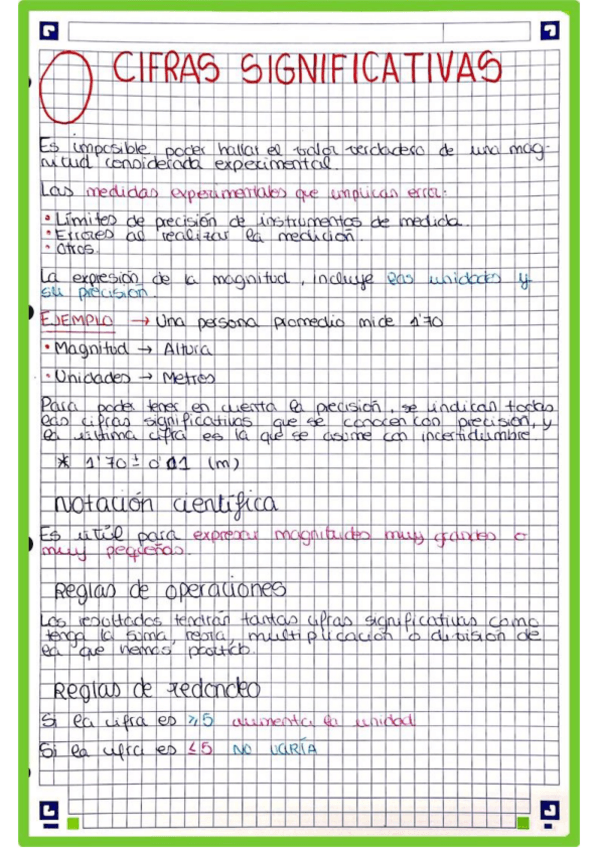 CIFRAS SIGNIFICATIVAS
Es imposible poder hallar el valor verdadero de una mag-
nitud considerada experimental.
Las medidas experimentales que implican error:
• Límites de precisión de instrumentos de medida.
• Errores al realizar la medición.
• Otros.
La expresión de la magnitud, incluye las unidades y
su precisión.
EJEMPLO → Una persona promedio mide 1'70
• Magnitud → Altura
• Unidades → Metros
Para poder tener en cuenta la precisión, se indican todas
las cifras significativas que se conocen con precisión, y
la última cifra es la que se asume con incertidumbre.
* 1'70 ± 0'01 (m)
Notación científica
Es útil para expresar magnitudes muy grandes o
muy pequeñas.
Reglas de operaciones
Los resultados tendrán tantas cifras significativas como
tenga la suma, resta, multiplicación o división de
la que hemos
Reglas de redondeo
Si la cifra es ≥5 aumenta la unidad
Si la cifra es ≤5 NO VARÍA